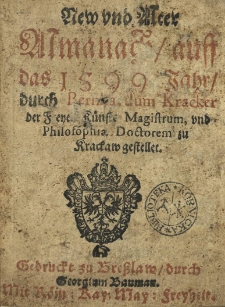 New vnd Alter
Almanach / auff
das 1599 Jahr /
durch Kracker
der Freyen Künste Magistrum, vnd
Philosophiæ Doctorem zu
Krackaw gestellet.
BIBLIOTEKA KORNICKA
Gedruckt zu Breßlaw / durch
Georgium Bauman.
Mit Röm: Kay: May: Freyheit.